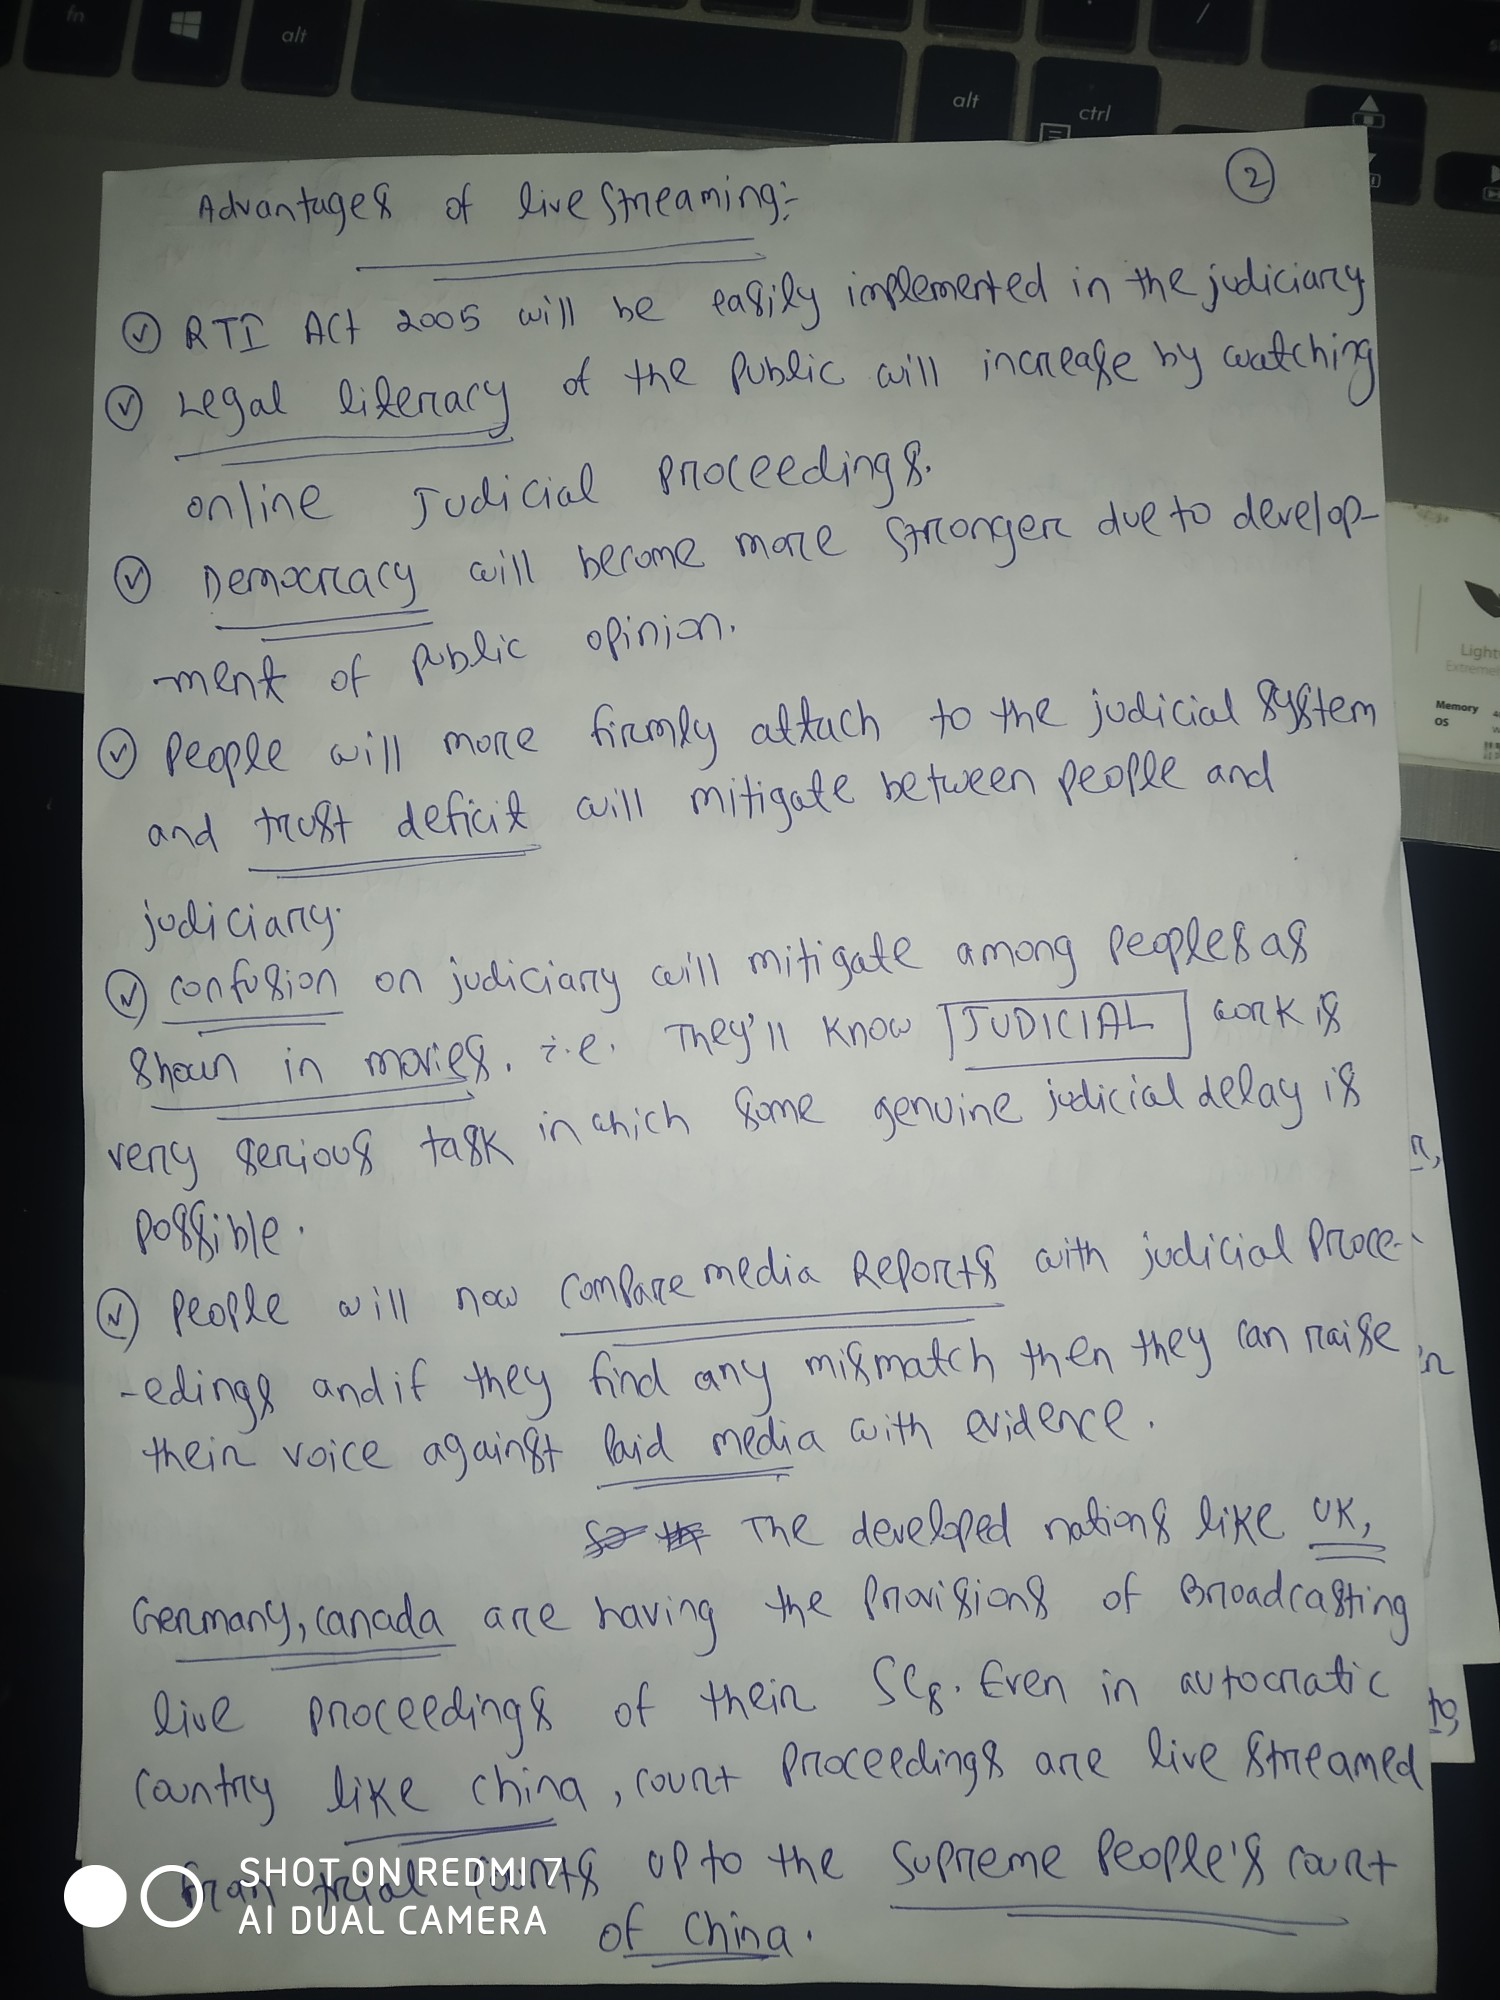 fn
alt
alt
ctrl
/
2
Advantages of live streaming:-
RTI Act 2005 will be easily implemented in the judiciary
Legal literacy of the public will increase by watching
online Judicial proceedings.
Democracy will become more stronger due to develop-
-ment of public opinion.
People will more firmly attach to the judicial system
and trust deficit will mitigate between people and
judiciary.
confusion on judiciary will mitigate among peoples as
shown in movies. i.e. They'll know JUDICIAL work is
very serious task in which some genuine judicial delay is
possible.
People will now compare media Reports with judicial proce-
-edings and if they find any mismatch then they can raise
their voice against paid media with evidence.
The developed nations like UK,
Germany, canada are having the provisions of Broadcasting
live proceedings of their SCs. Even in autocratic
country like china, court proceedings are live streamed
from trial courts up to the Supreme People's court
of China.
SHOT ON REDMI 7
AI DUAL CAMERA
Light
Extreme
Memory
OS